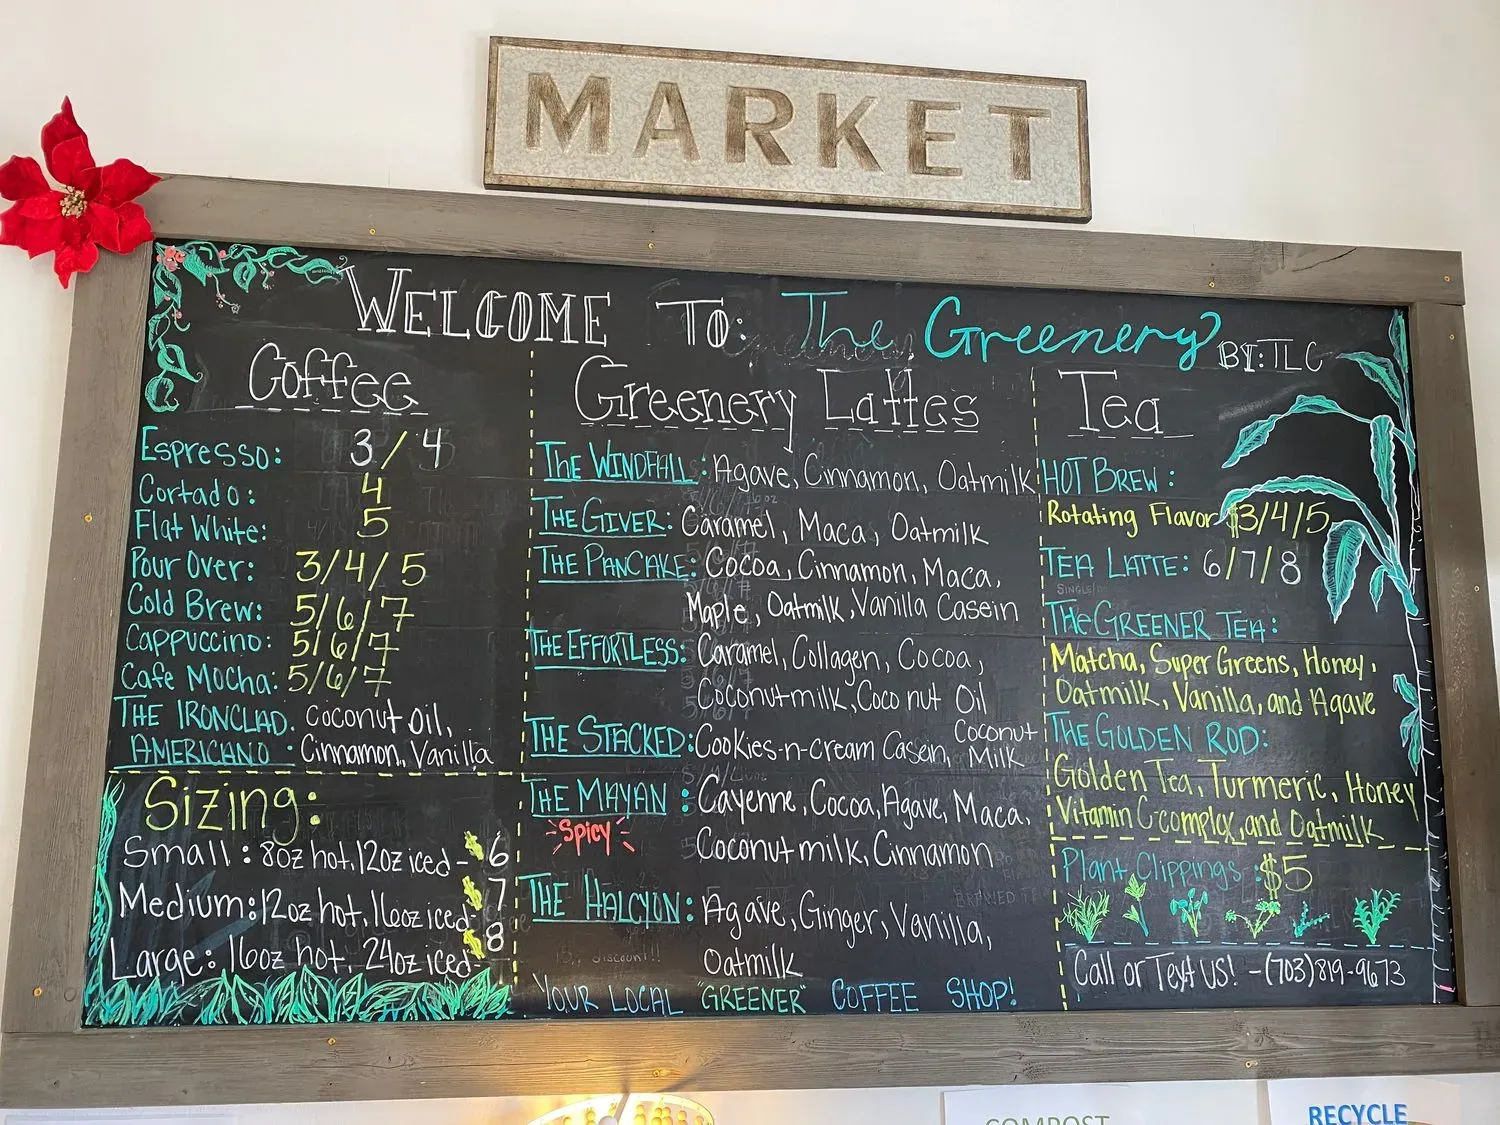 MARKET
WELCOME TO: The Greenery BY: TLC
Coffee
Espresso: 3/4
Cortado: 4
Flat White: 5
Pour Over: 3/4/5
Cold Brew: 5/6/7
Cappuccino: 5/6/7
Cafe Mocha: 5/6/7
THE IRONCLAD. Coconut oil,
AMERICANO: Cinnamon, Vanilla
Sizing:
Small: 8oz hot, 12oz iced - $6
Medium: 12oz hot, 16oz iced - $7
Large: 16oz hot, 24oz iced - $8
Greenery Lattes
THE WINDFALL: Agave, Cinnamon, Oatmilk
THE GIVER: Caramel, Maca, Oatmilk
THE PANCAKE: Cocoa, Cinnamon, Maca,
Maple, Oatmilk, Vanilla Casein
THE EFFORTLESS: Caramel, Collagen, Cocoa,
Coconutmilk, Coconut Oil
THE STACKED: Cookies-n-cream Casein, Coconut
Milk
THE MAYAN: Cayenne, Cocoa, Agave, Maca,
Spicy
Coconutmilk, Cinnamon
THE HALCYON: Agave, Ginger, Vanilla,
Oatmilk
YOUR LOCAL "GREENER" COFFEE SHOP!
Tea
HOT BREW:
Rotating Flavor $3/4/5
TEA LATTE: 6/7/8
THE GREENER TEA:
Matcha, Super Greens, Honey,
Oatmilk, Vanilla, and Agave
THE GOLDEN ROD:
Golden Tea, Turmeric, Honey
Vitamin C-complex, and Oatmilk
Plant Clippings: $5
Call or Text US! -(703)819-9673
COMPOST
RECYCLE